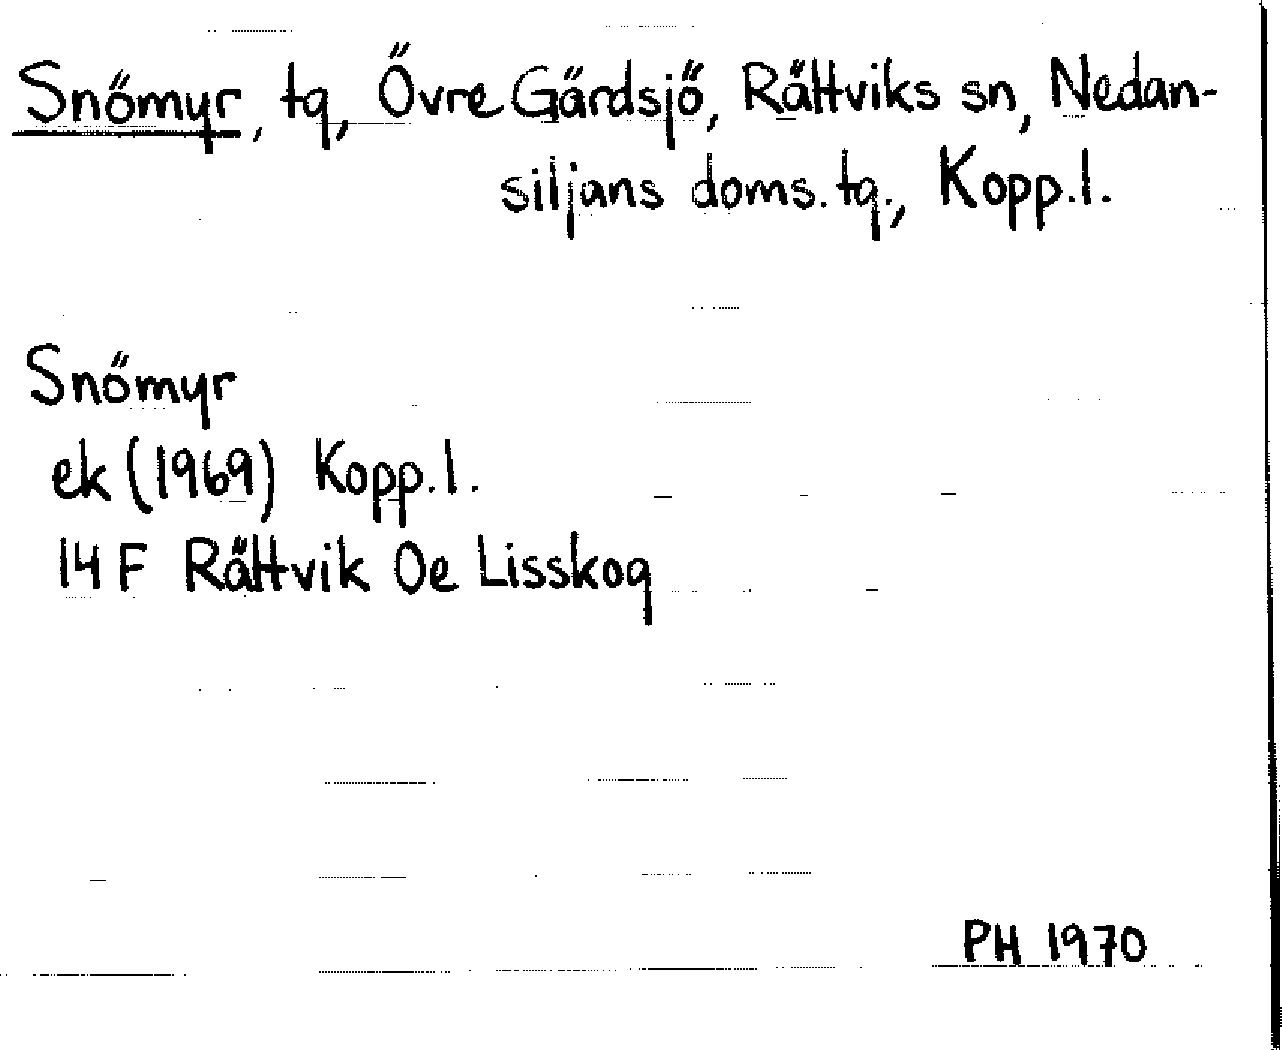 Snömyr, tg, Övre Gärdsjö, Rättviks sn, Nedan-
siljans doms.tg., Kopp.l.
Snömyr
ek (1969) Kopp.l.
14 F Rättvik Oe Lisskog
PH 1970